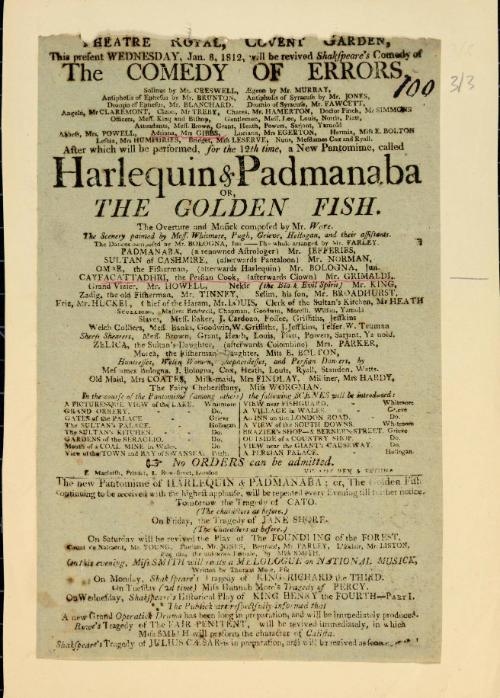 THEATRE ROYAL, COVENT GARDEN,
This present WEDNESDAY, Jan. 8, 1812, will be revived Shakspeare's Comedy of
The COMEDY OF ERRORS.
100
3/3
Solinus by Mr. CRESWELL, Ægeon by Mr. MURRAY,
Antipholis of Ephesus by Mr BRUNTON, Antipholis of Syracuse by Mr. JONES,
Dromio of Ephesus, Mr. BLANCHARD, Dromio of Syracuse, Mr. FAWCETT,
Angelo, Mr CLAREMONT, Cleon, Mr TREBY, Chares, Mr. HAMERTON, Doctor Pinch, Mr SIMMONS
Officers, Mess. King and Bishop, Gentlemen, Mess. Lee, Louis, North, Platt,
Attendants, Mess. Brown, Grant, Heath, Powers, Sarjant, Yarnold
Abbess, Mrs. POWELL, Adriana, Mrs GIBBS, Luciana, Mrs EGERTON, Hermia, Miss E. BOLTON
Lesbia, Mrs HUMPHRIES, Bridget, Mrs LESERVE, Nuns, Mesdames Cox and Ryall.
After which will be performed, for the 12th time, a New Pantomime, called
Harlequin & Padmanaba
OR,
THE GOLDEN FISH.
The Overture and Musick composed by Mr. Ware.
The Scenery painted by Mess. Whitmore, Pugh, Grieve, Hollogan, and their assistants.
The Dances composed by Mr. BOLOGNA, Jun.—The whole arranged by Mr. FARLEY.
PADMANABA, (a renowned Astrologer) Mr. JEFFERIES,
SULTAN of CASHMIRE, (afterwards Pantaloon) Mr. NORMAN,
OMAR, the Fisherman, (afterwards Harlequin) Mr. BOLOGNA, Jun.
CAYFACATTADHRI, the Persian Cook, (afterwards Clown) Mr. GRIMALDI,
Grand Vizier, Mr. HOWELL, Nekir (the Black Evil Spirit) Mr. KING,
Zadig, the old Fisherman, Mr. TINNEY, Selim, his son, Mr. BROADHURST,
Friz, Mr. HUCKEL, Chief of the Haram, Mr. LOUIS, Clerk of the Sultan's Kitchen, Mr HEATH
Slaves, Mess. Baker, J. Cardozo, Goodwin, W. Griffiths, Jefskins
Welch Colliers, Mess. Banks, Goodwin, W. Griffiths, J. Jeffkins, Telser W. Truman
Sheep Sheerers, Mess. Brown, Grant, Heath, Louis, Platt, Powers, Sarjant, Yarnold.
ZELICA, the Sultan's Daughter, (afterwards Colombine) Mrs. PARKER,
Fisherman's Daughter, Miss E. BOLTON,
Houries, Welch Women, Shepherdesses, and Persian Dancers, by
Mesdames Bologna, L. Bologna, Cox, Heath, Louis, Ryall, Standen, Watts.
Old Maid, Mrs COATES, Milk-maid, Mrs FINDLAY, Milliner, Mrs HARDY,
The Fairy Cheheristany, Miss WORGMAN.
In the course of the Pantomime (among others) the following SCENES will be introduced:
A PICTURESQUE VIEW of the LAKE. Whitmore
GRAND ORRERY. Do.
GATES of the PALACE Grieve
The SULTAN'S PALACE. Hollogan
The SULTAN'S KITCHEN. Do.
GARDENS of the SERAGLIO. Do.
Mouth of a COAL MINE, in Wales. Do.
View of the TOWN and BAY of SWANSEA. Pugh.
VIEW near FISHGUARD. Whitmore
A VILLAGE in WALES Grieve
An INN on the LONDON ROAD. Do.
A VIEW of the SOUTH DOWNS Whitmore
BRAZIER'S SHOP—a BERNER'S STREET. Grieve
OUTSIDE of a COUNTRY SHOP. Do.
VIEW near the GIANT'S CAUSEWAY. Do.
A PERSIAN PALACE. Hollogan.
☞ No ORDERS can be admitted.
E. Macleish, Printer, 2, Bow-street, London
The new Pantomime of HARLEQUIN & PADMANABA; or, The Golden Fish
continuing to be received with the highest applause, will be repeated every Evening till further notice.
Tomorrow the Tragedy of CATO.
(The characters as before.)
On Friday, the Tragedy of JANE SHORE.
(The Characters as before.)
On Saturday will be revived the Play of The FOUNDLING of the FOREST,
Count de Valmont, Mr. YOUNG, Florian, Mr. JONES, Bertrand, Mr. FARLEY, L'Eclair, Mr. LISTON,
the unknown Female, by Miss SMITH.
On this evening, Miss SMITH will recite a MELOLOGUE on NATIONAL MUSICK,
Written by Thomas Moore, Esq
On Monday, Shakspeare's Tragedy of KING RICHARD the THIRD.
On Tuesday (2d time) Miss Hannah More's Tragedy of PERCY.
On Wednesday, Shakspeare's Historical Play of KING HENRY the FOURTH—PART I.
The Publick are respectfully informed that
A new Grand Operatick Drama has been long in preparation, and will be immediately produced.
Rowe's Tragedy of The FAIR PENITENT, will be revived immediately, in which
Miss SMITH will perform the character of Calista.
Shakspeare's Tragedy of JULIUS CÆSAR is in preparation, and will be revived as soon